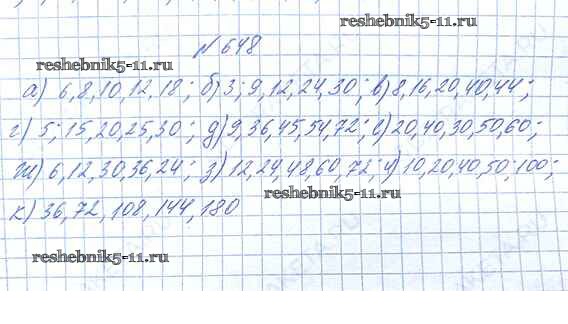 reshebnik5-11.ru
№648
reshebnik5-11.ru
а) 6,8,10,12,18; б) 3; 9,12,24,30; в) 8,16,20,40,44;
г) 5; 15,20,25,30; д) 9,36,45,54,72; е) 20,40,30,50,60;
ж) 6,12,30,36,24; з) 12,24,48,60,72; и) 10,20,40,50,100;
reshebnik5-11.ru
к) 36,72,108,144,180
reshebnik5-11.ru